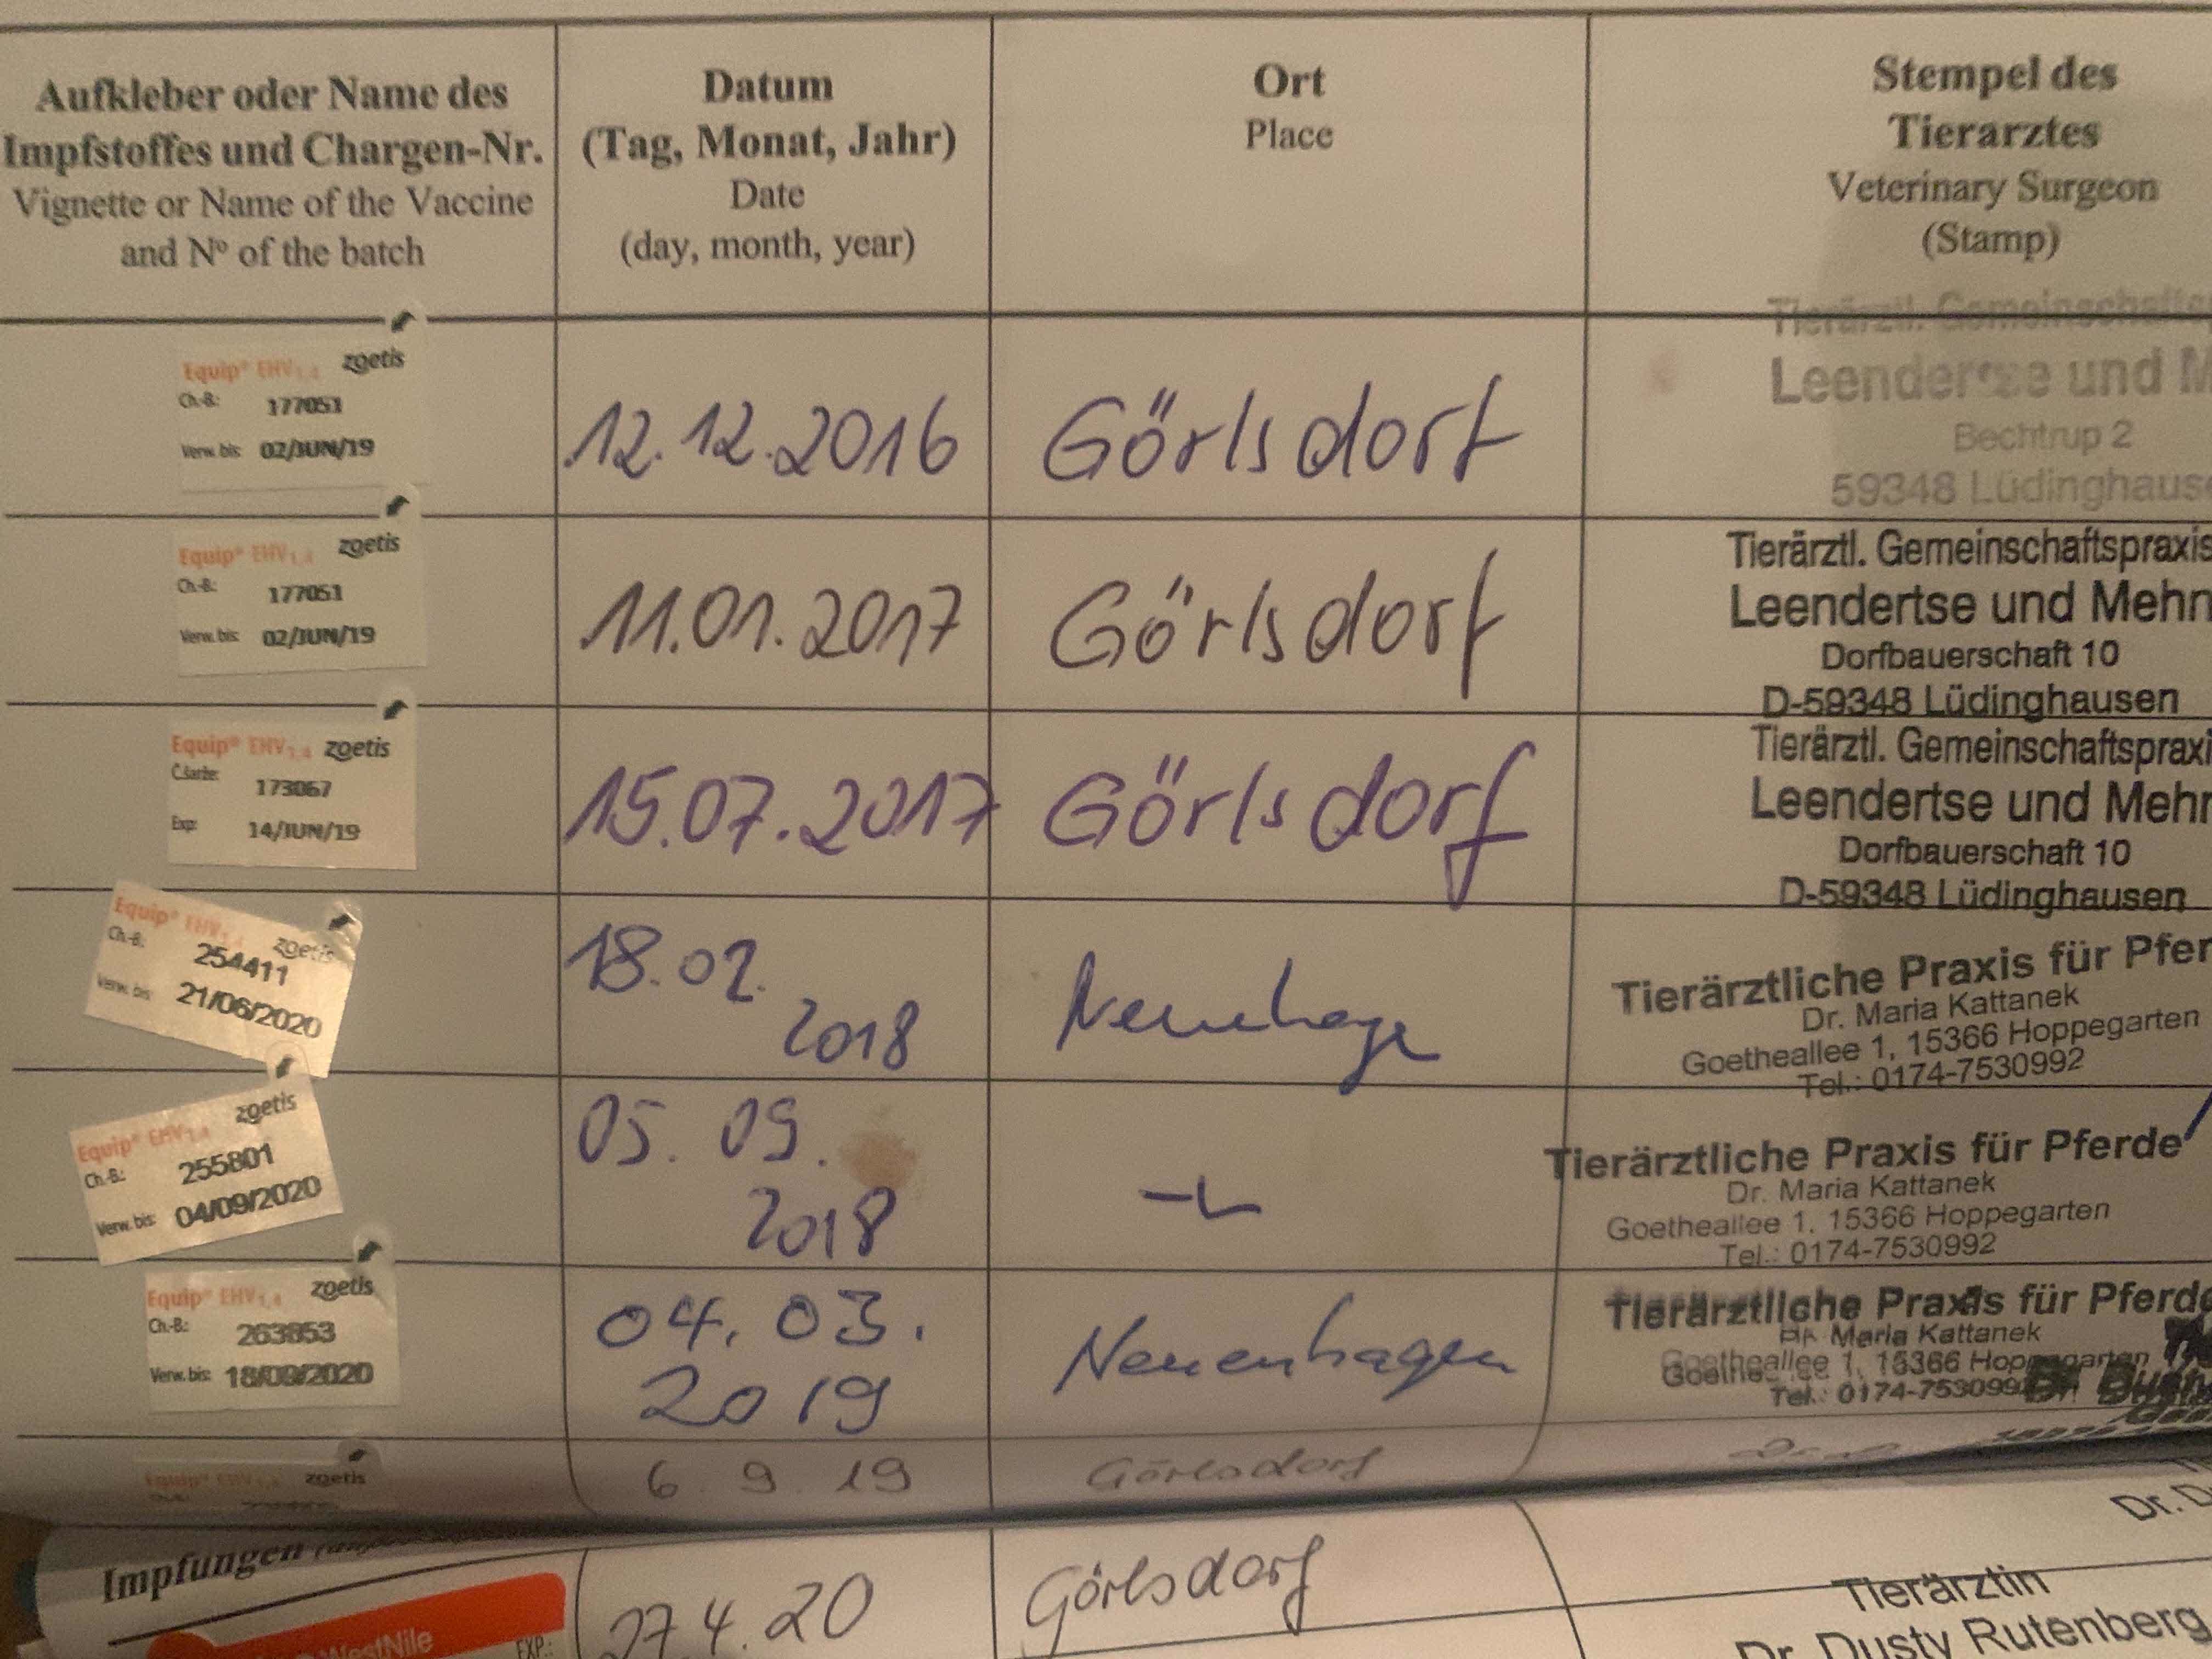 Aufkleber oder Name des
Impfstoffes und Chargen-Nr.
Vignette or Name of the Vaccine
and Nº of the batch
Datum
(Tag, Monat, Jahr)
Date
(day, month, year)
Ort
Place
Stempel des
Tierarztes
Veterinary Surgeon
(Stamp)
Equip® EHV1,4 zoetis
Ch.-B.: 177051
Verw. bis: 02/JUN/19
12.12.2016
Görlsdorf
Tierärztl. Gemeinschafts
Leendertse und M
Bechtrup 2
59348 Lüdinghause
Equip® EHV1,4 zoetis
Ch.-B.: 177051
Verw. bis: 02/JUN/19
11.01.2017
Görlsdorf
Tierärztl. Gemeinschaftspraxis
Leendertse und Mehr
Dorfbauerschaft 10
D-59348 Lüdinghausen
Equip® EHV1,4 zoetis
173067
Exp: 14/JUN/19
15.07.2017
Görlsdorf
Tierärztl. Gemeinschaftspraxi
Leendertse und Mehr
Dorfbauerschaft 10
D-59348 Lüdinghausen
Equip® EHV1,4 zoetis
Ch.-B.: 254411
Verw. bis: 21/06/2020
18.02.
2018
Tierärztliche Praxis für Pfer
Dr. Maria Kattanek
Goetheallee 1, 15366 Hoppegarten
Tel.: 0174-7530992
Equip® EHV1,4 zoetis
Ch.-B.: 255801
Verw. bis: 04/09/2020
05. 09.
2018
Tierärztliche Praxis für Pferde
Dr. Maria Kattanek
Goetheallee 1, 15366 Hoppegarten
Tel.: 0174-7530992
Equip® EHV1,4 zoetis
Ch.-B.: 263853
Verw. bis: 18/09/2020
04. 03.
2019
Neuenhagen
Tierärztliche Praxis für Pferde
Dr. Maria Kattanek
Goetheallee 1, 15366 Hoppegarten
Tel.: 0174-753099
Equip® EHV1,4 zoetis
6 9 19
Görlsdorf
Impfungen
WestNile
EXP.:
27.4.20
Görlsdorf
Dr. D
Tierärztin
Dr. Dusty Rutenberg